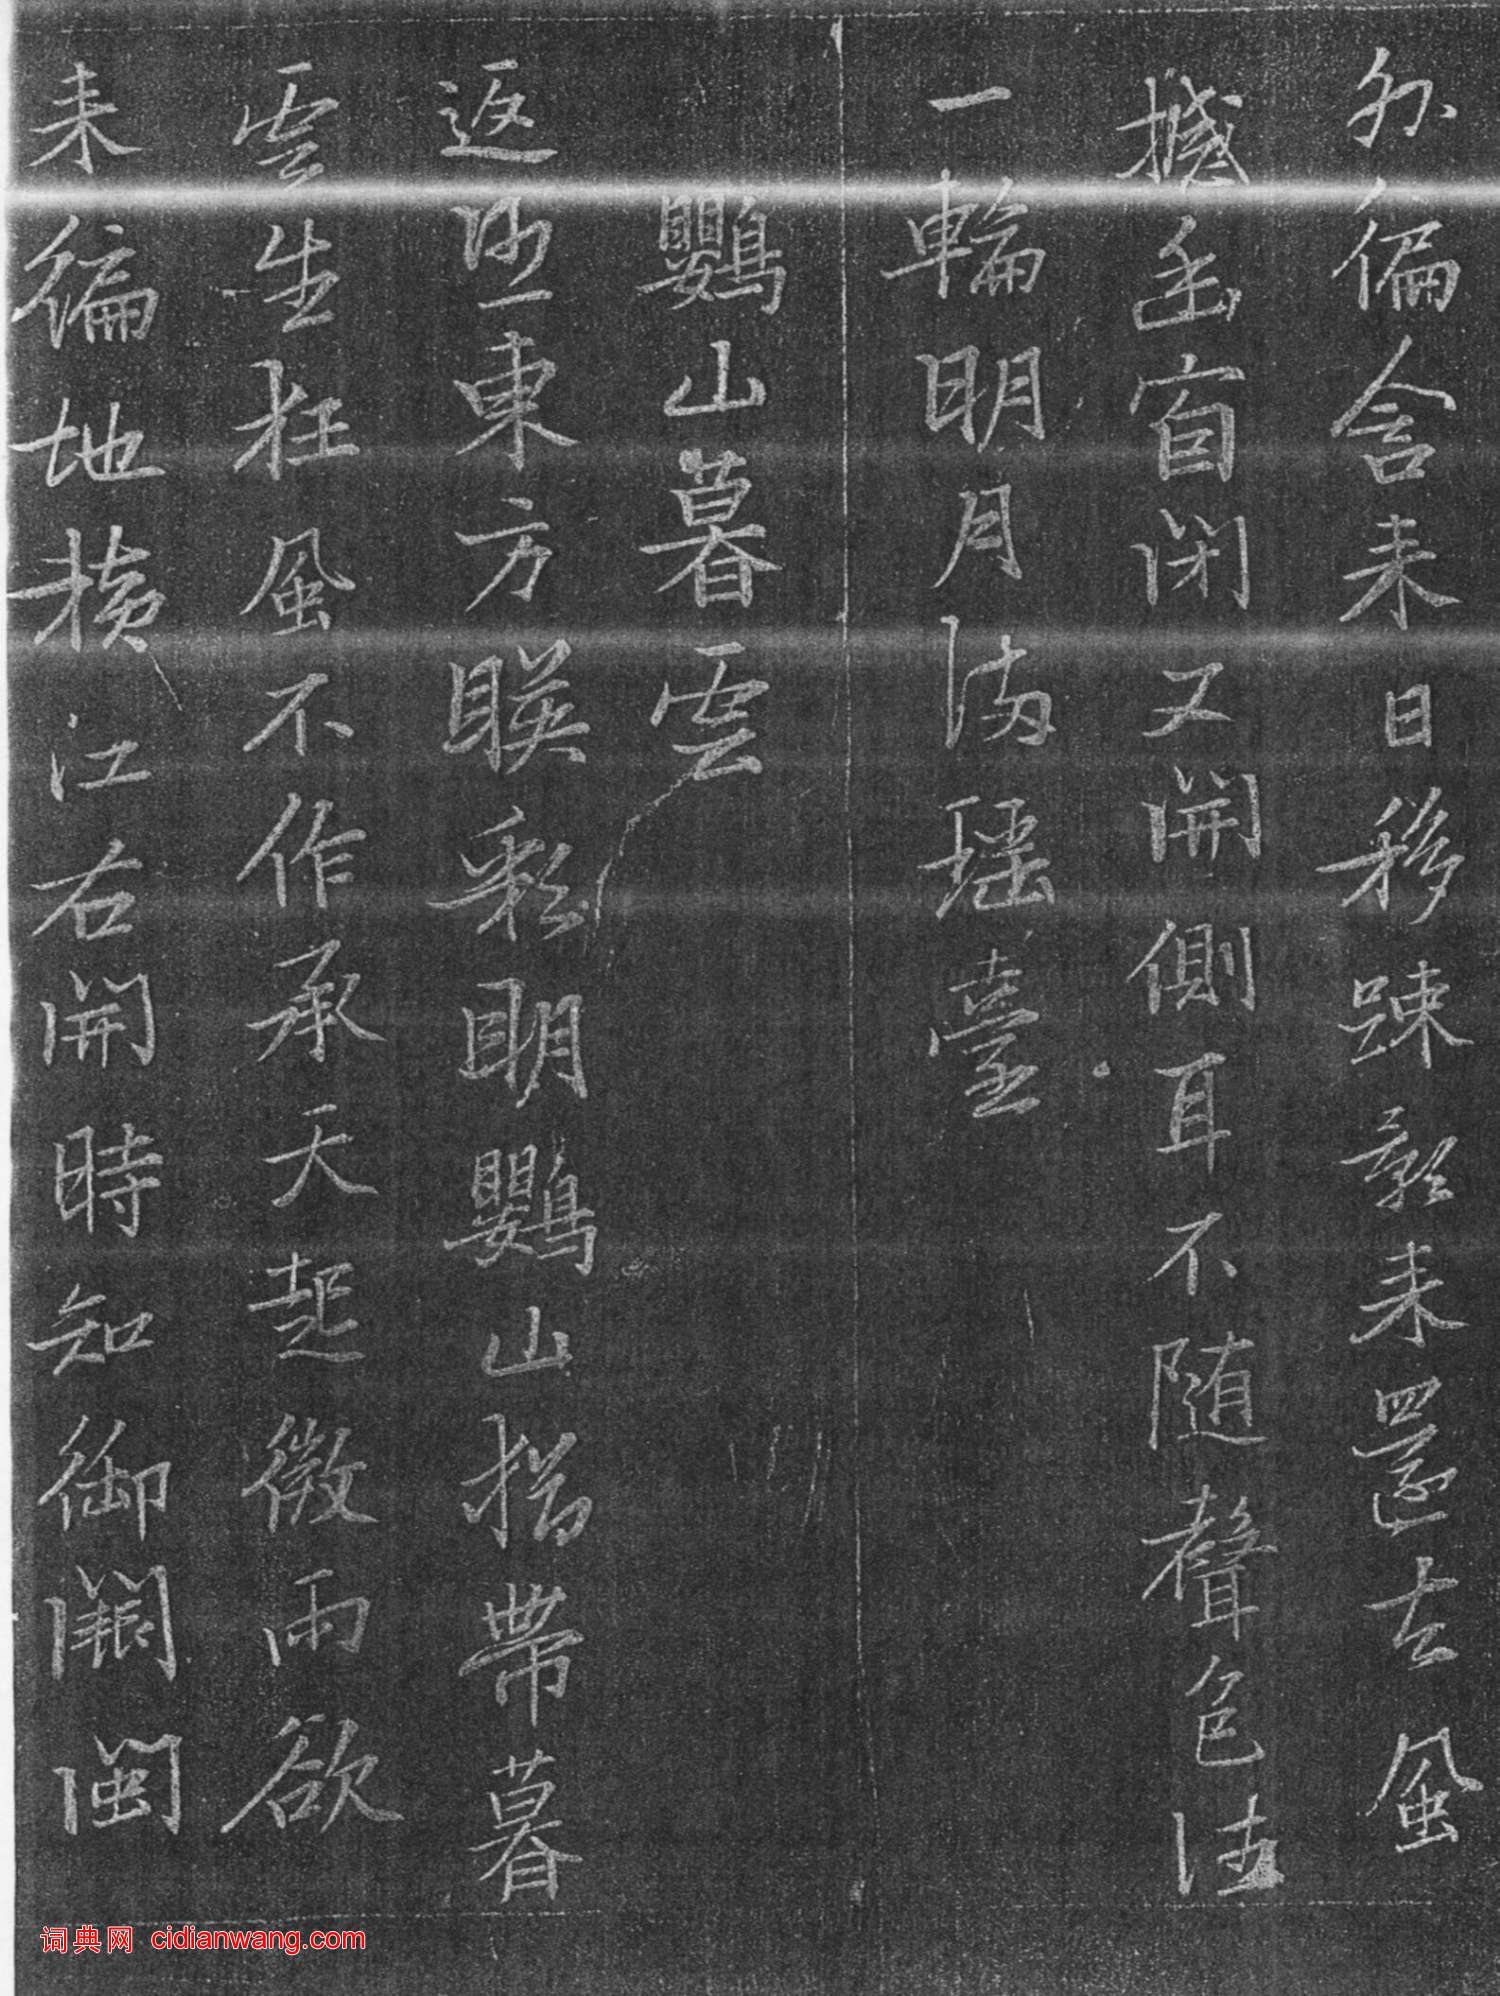 外偏舍来日移踈影来還去風
撼幽窗闭又開側耳不随聲色法
一輪明月满瑶臺
鸚山暮雲
返照東方暎彩明鸚山㨗帶暮
雲生狂風不作承天起微雨欲
来徧地横江右開時知御闕閩
词典网 cidianwang.com